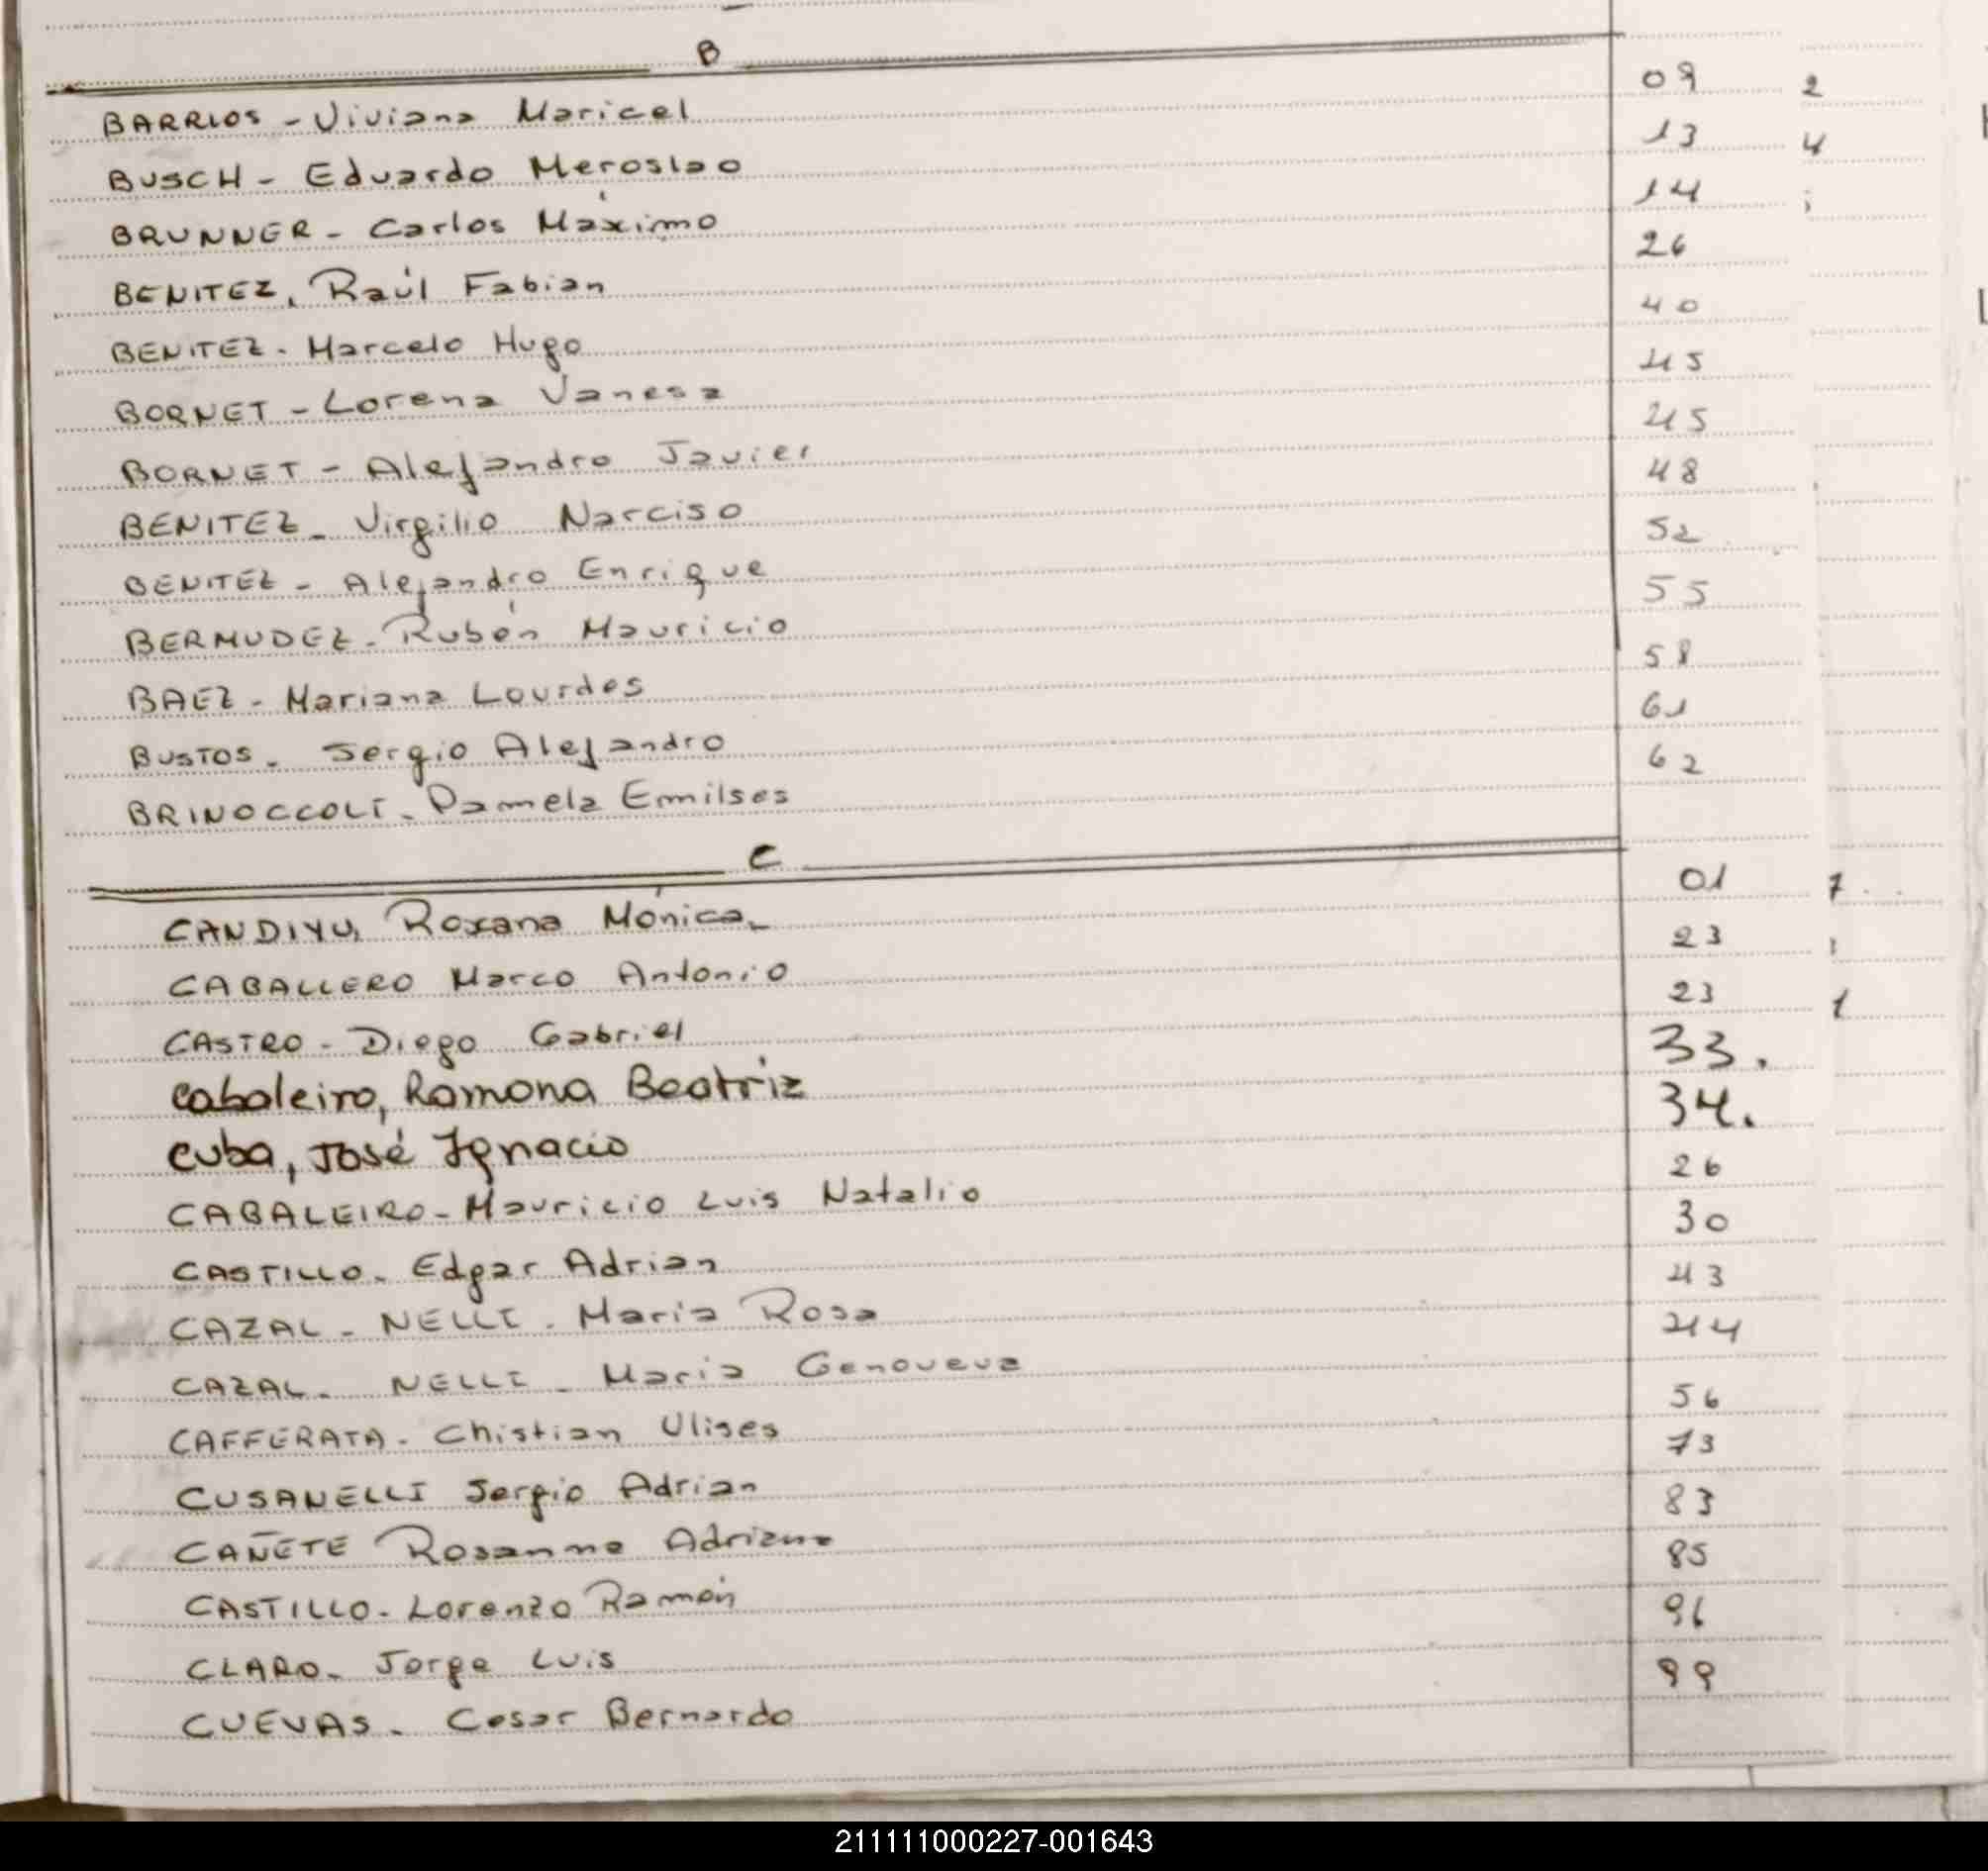 B
BARRIOS - Viviana Maricel 09 2
BUSCH - Eduardo Meroslao 13 4
BRUNNER - Carlos Máximo 14
BENITEZ, Raúl Fabian 26
BENITEZ - Marcelo Hugo 40
BORNET - Lorena Vanesa 45
BORNET - Alejandro Javier 45
BENITEZ - Virgilio Narciso 48
BENITEZ - Alejandro Enrique 52
BERMUDEZ - Rubén Mauricio 55
BAEZ - Mariana Lourdes 58
BUSTOS - Sergio Alejandro 61
BRINOCCOLI - Pamela Emilses 62
C
CANDIYU, Roxana Mónica 01 7
CABALLERO Marco Antonio 23
CASTRO - Diego Gabriel 23 1
Cabaleiro, Ramona Beatriz 33.
Cuba, José Ignacio 34.
CABALEIRO - Mauricio Luis Natalio 26
CASTILLO - Edgar Adrian 30
CAZAL - NELLI - Maria Rosa 43
CAZAL - NELLI - Maria Genoveva 44
CAFFERATA - Chistian Ulises 56
CUSANELLI Sergio Adrian 73
CAÑETE Rosanna Adriana 83
CASTILLO - Lorenzo Ramón 85
CLARO - Jorge Luis 96
CUEVAS - Cesar Bernardo 99
211111000227-001643